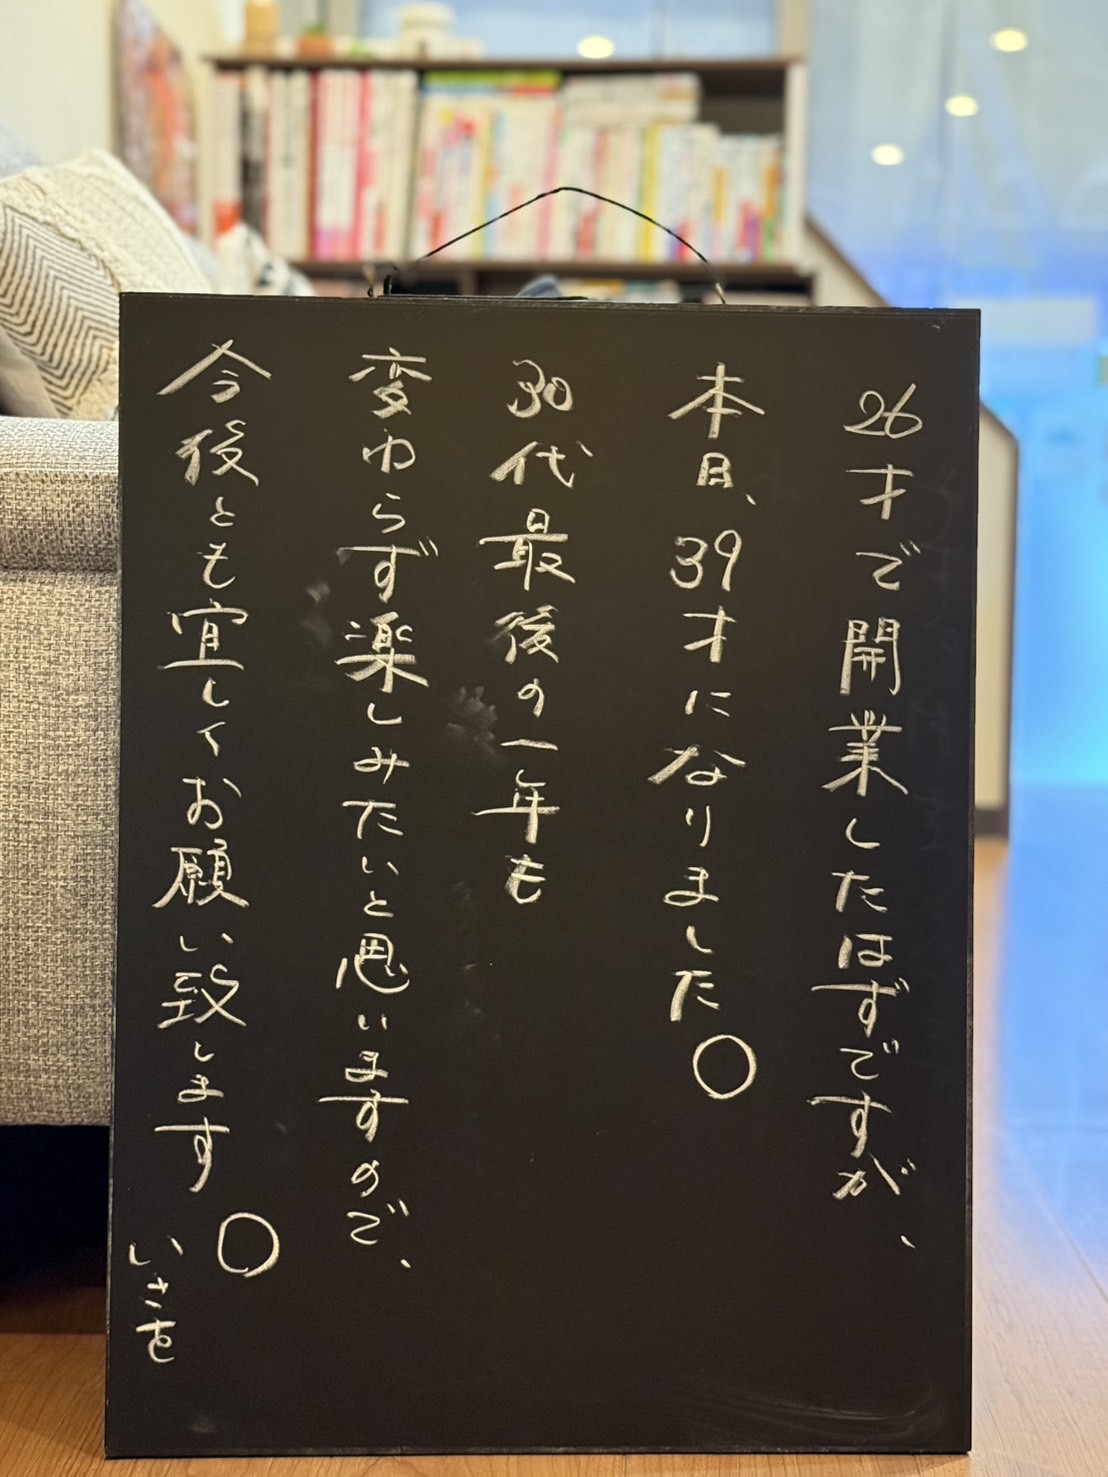 26才で開業したはずですが、
本日、39才になりました○
30代最後の一年も
変わらず楽しみたいと思いますので、
今後とも宜しくお願い致します○
いさを